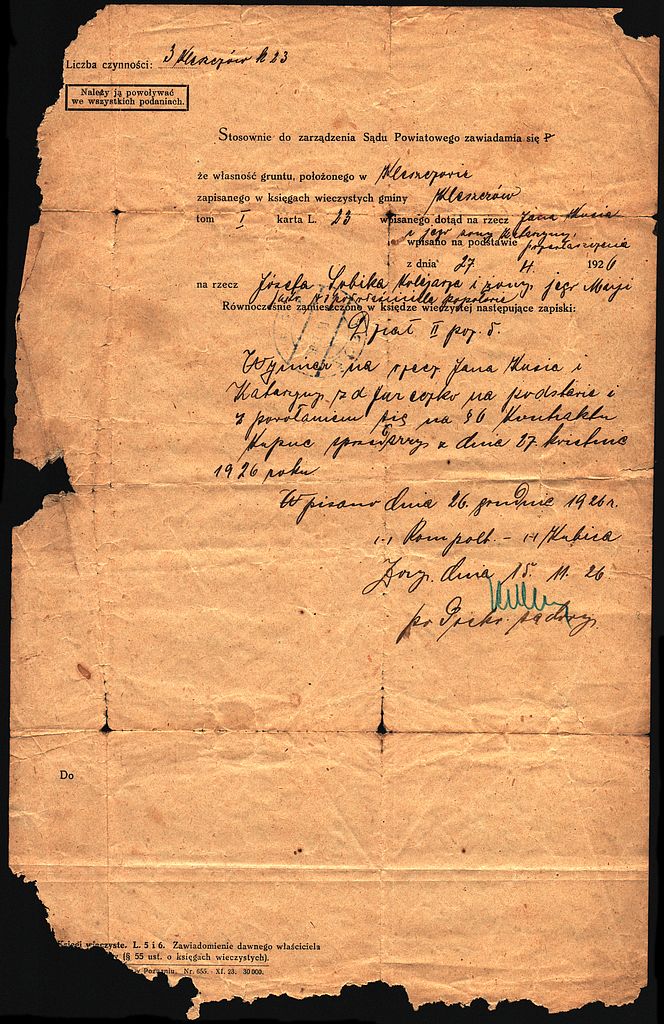 Liczba czynności: 3 Kleszczów K 23
Należy ją powoływać
we wszystkich podaniach.
Stosownie do zarządzenia Sądu Powiatowego zawiadamia się P
że własność gruntu, położonego w Kleszczowie
zapisanego w księgach wieczystych gminy Kleszczów
tom I karta L. 23 wpisanego dotąd na rzecz Jana Kusia
i jego żony Katarzyny,
wpisano na podstawie przewłaszczenia
z dnia 27. 4. 1926
na rzecz Józefa kolejarza i żony jego Maryi
w w popołowie
Równocześnie zamieszczono w księdze wieczystej następujące zapiski:
Dział II poz. 5.
Wymiar na rzecz Jana Kusia i
Katarzyny z d na podstawie i
z powołaniem się na § 6 Kontraktu
Kupna z dnia 27. kwietnia
1926 roku
Wpisano dnia 26. grudnia 1926 r.
(-) Rompolt. - (-) Kubica
Żory, dnia 15. 11. 26
sądowy
Do
Księgi wieczyste. L. 5 i 6. Zawiadomienie dawnego właściciela
(§ 55 ust. o księgach wieczystych).
w Poznaniu. Nr. 655. - XI. 23. 30 000.